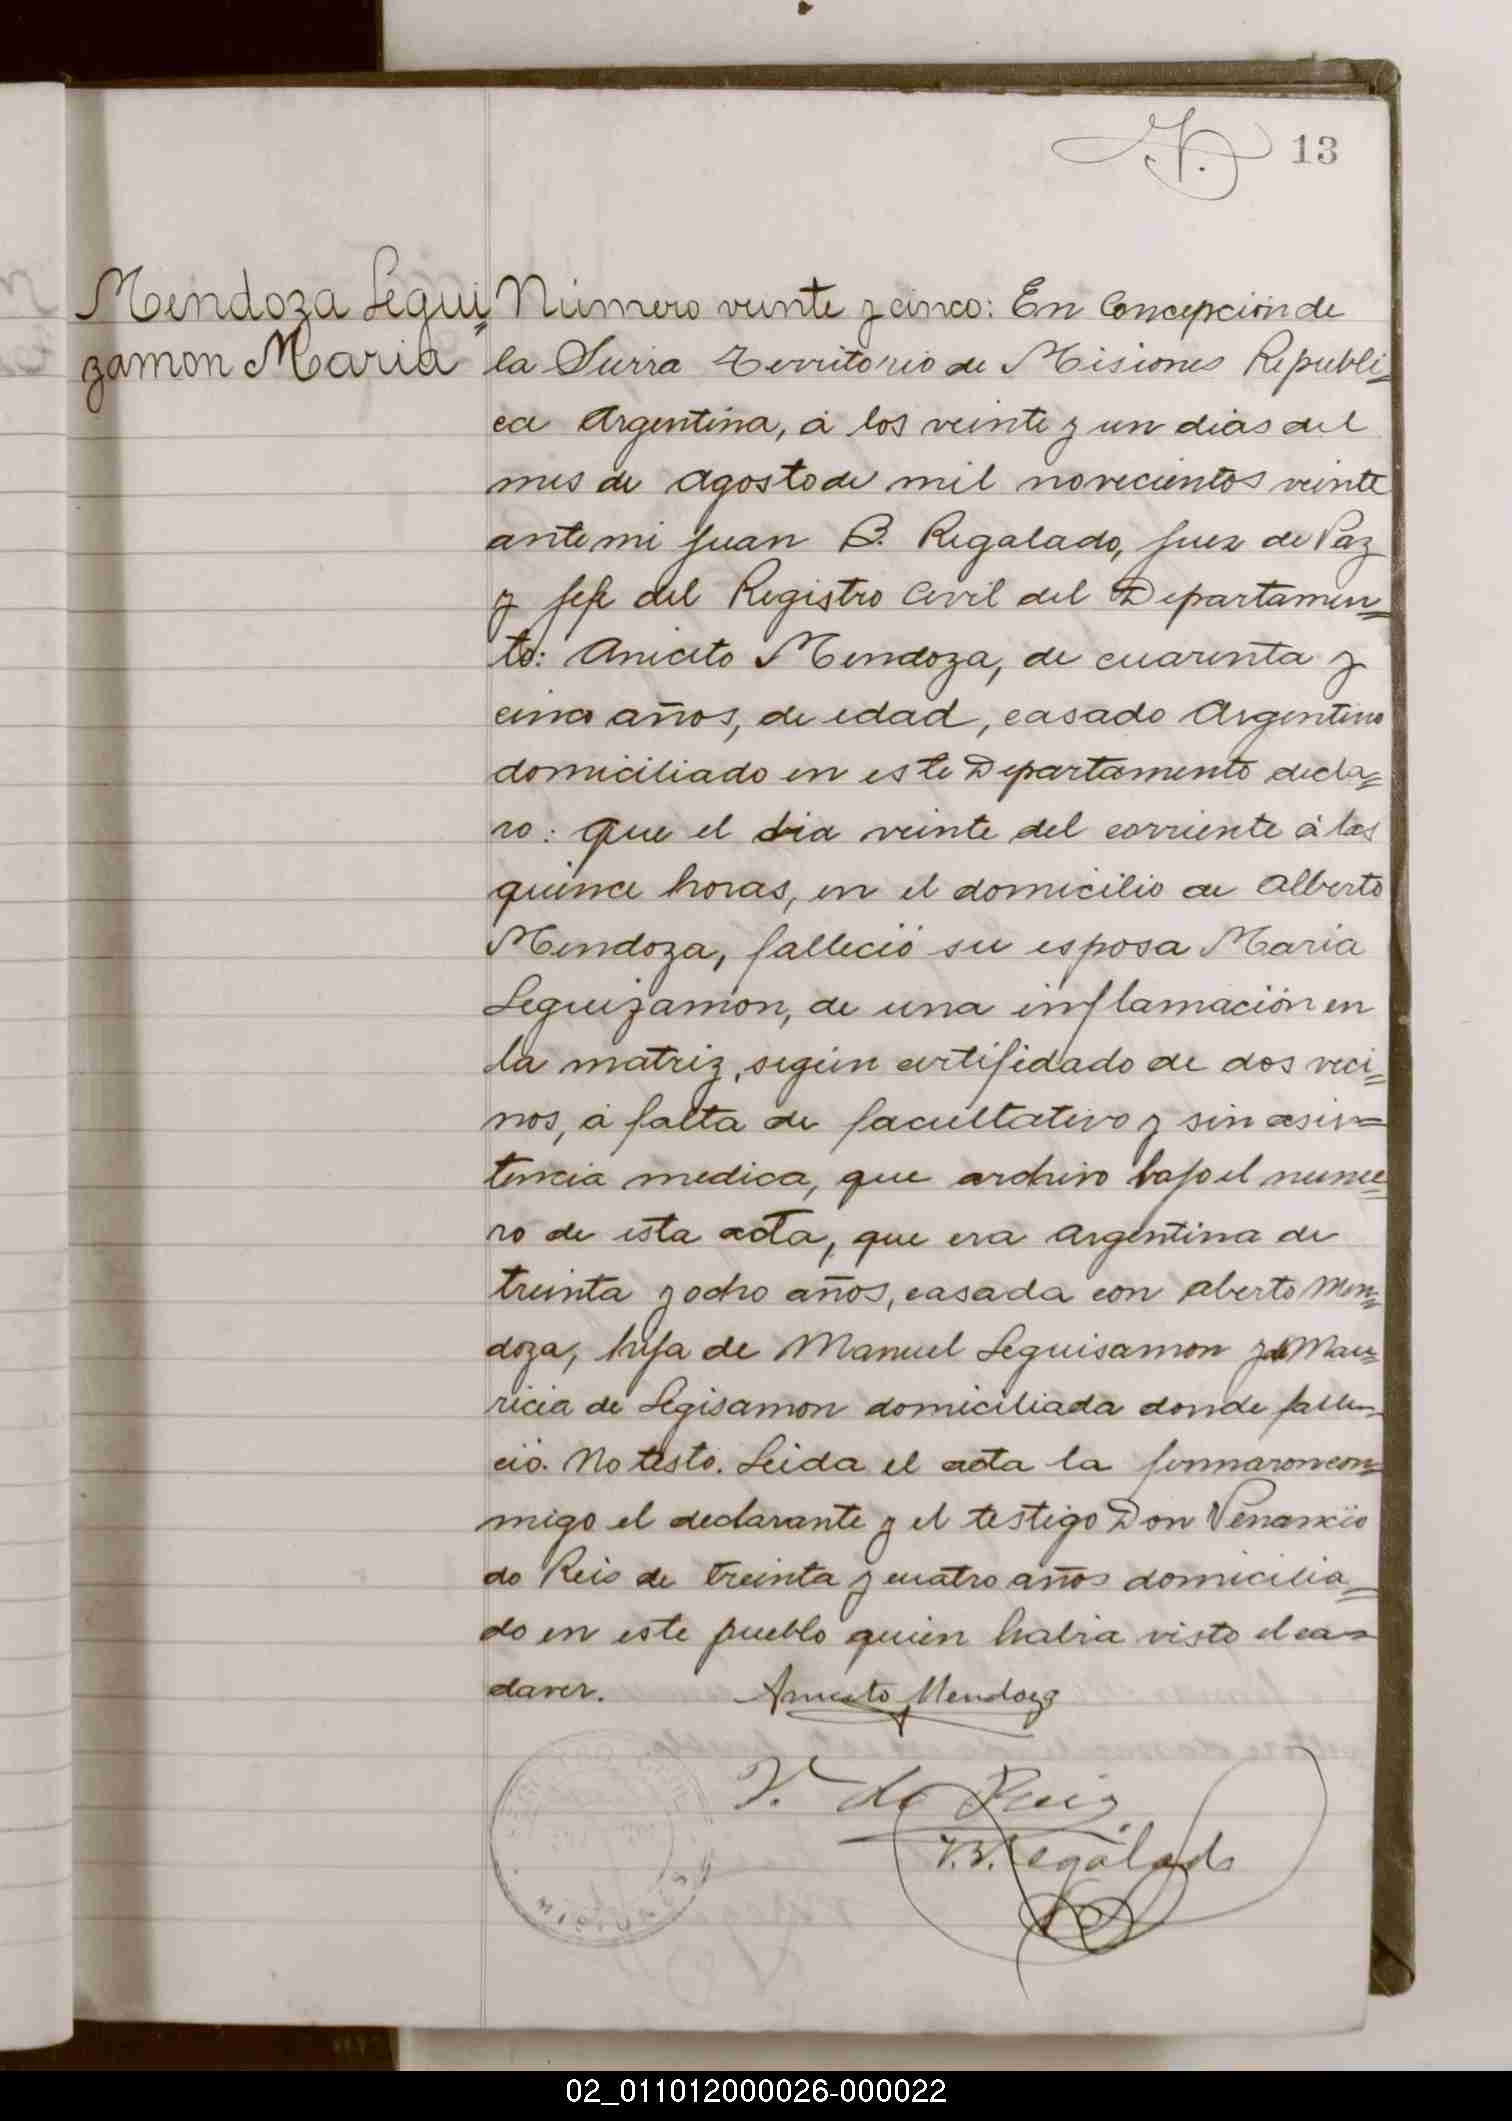 13
Mendoza Legui=
zamon Maria
Número veinte y cinco: En Concepción de
la Sierra Territorio de Misiones Republi=
ca Argentina, á los veinte y un dias del
mes de Agosto de mil novecientos veinte
ante mi Juan B. Regalado, Juez de Paz
y Jefe del Registro Civil del Departamen=
to: Aniceto Mendoza, de cuarenta y
cinco años, de edad, casado Argentino
domiciliado en este Departamento decla=
ro: Que el dia veinte del corriente á las
quince horas, en el domicilio de Alberto
Mendoza, falleció su esposa Maria
Leguizamon, de una inflamación en
la matriz, según certifidado de dos veci=
nos, á falta de facultativo y sin asis=
tencia medica, que archivo bajo el nume=
ro de esta acta, que era Argentina de
treinta y ocho años, casada con Alberto Men=
doza, hija de Manuel Leguisamon y de Mau=
ricia de Legisamon domiciliada donde falle=
ció. No testó. Leida el acta la firmaron con=
migo el declarante y el testigo Don Venancio
do Reis de treinta y cuatro años domicilia=
do en este pueblo quien habia visto el ca=
daver. Aniceto Mendoza
V. do Reis
J. B. Regalado
02_011012000026-000022